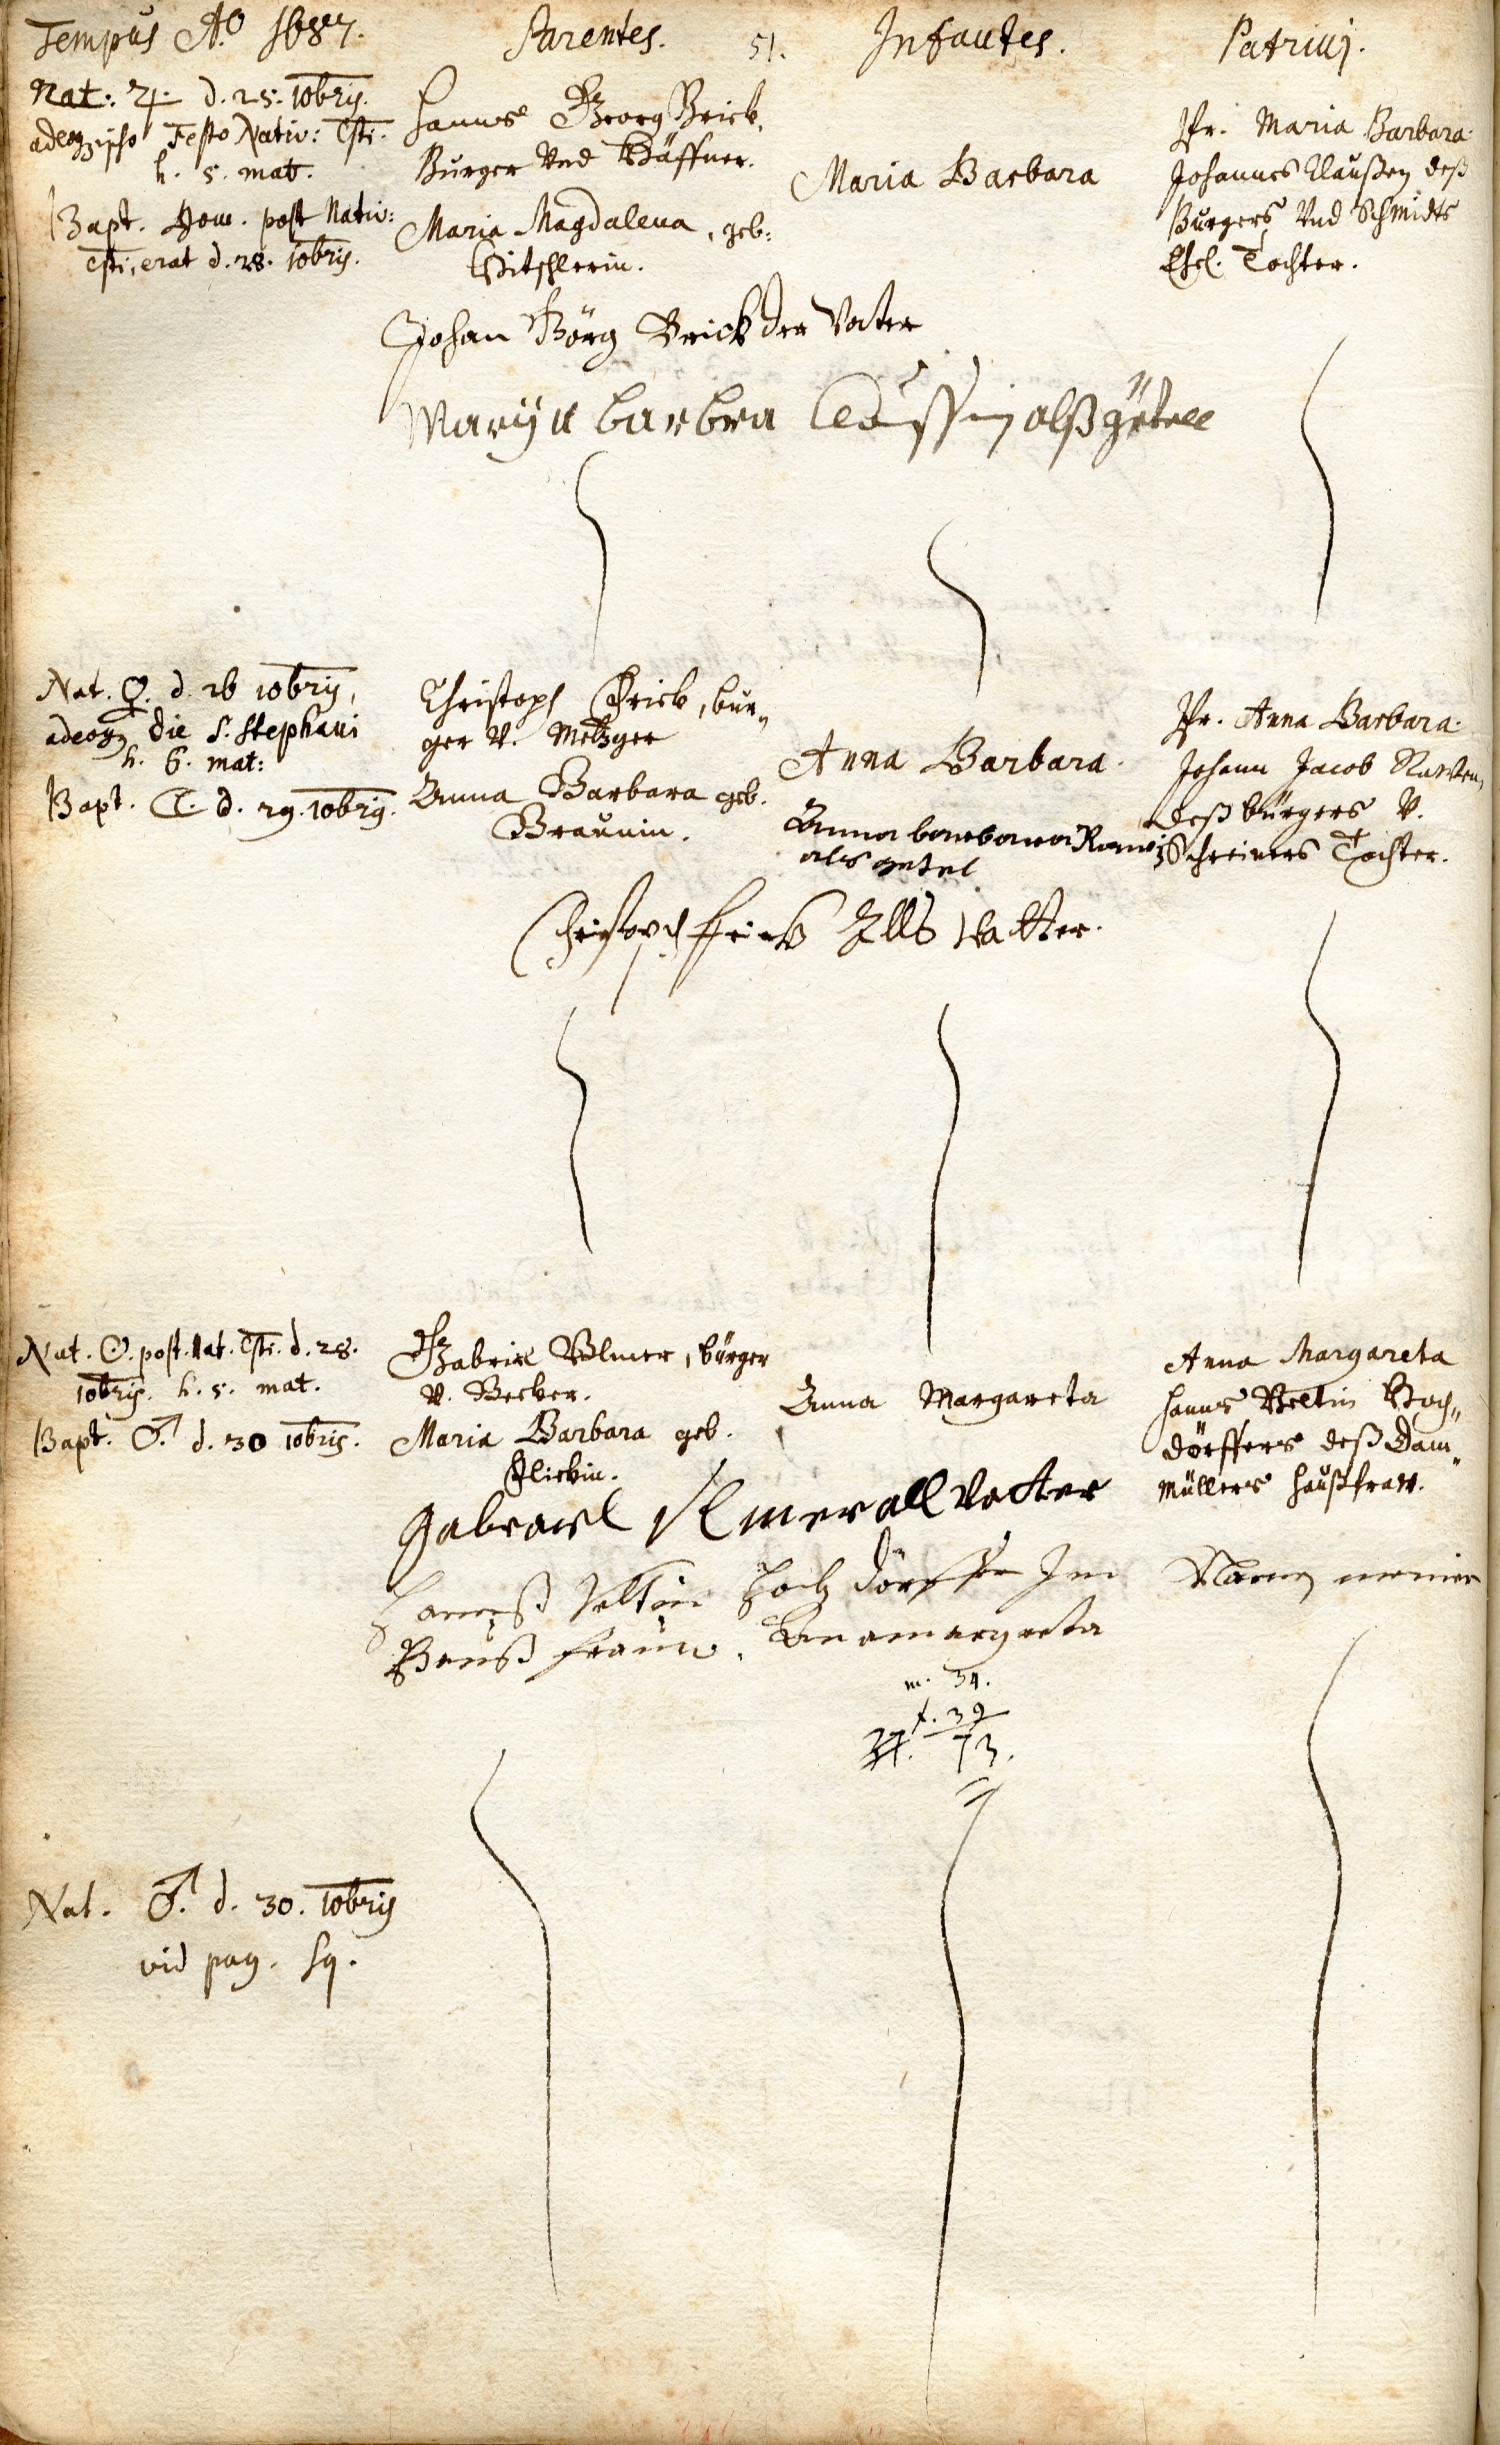 Tempus Aº 1687. Parentes. 51. Infantes. Patrinj.
Nat: ♃. d. 25. 10bris.
adeoqz ipso Festo Nativ: Csti.
h. 5. mat.
Bapt. Dom. post Nativ:
Csti, erat d. 28. 10bris.
Hannß Georg Brick,
Burger Vnd Häffner.
Maria Magdalena, geb:
Maria Barbara
Jfr. Maria Barbara
Johannes Claußen deß
Burgers Vnd Schmidts
Ehel. Tochter.
Johan Görg Brick der Vater
Marÿa barbra Claussin alß götell
Nat. ♀. d. 26 10bris,
adeoqz die S. Stephani
h. 6. mat:
Bapt. ☾. d. 29. 10bris.
Christoph Frick, bur„
ger V. Metzger
Anna Barbara geb.
Braunin.
Anna Barbara
Anna barbara
als getel
Jfr. Anna Barbara
Johann Jacob
deß bürgers V.
Schreiners Tochter.
Christoph frick Alls Vatter.
Nat. ☉. post. Nat. Csti. d. 28.
10bris. h. 5. mat.
Bapt. ♂. d. 30 10bris.
Gabriel Ulmer, bürger
V. Becker.
Maria Barbara geb.
Flickin.
Anna Margareta
Anna Margareta
Hannß Veltin Hoch„
dörffers deß Dam„
müllers haußfraw.
gabrael Ulmer all Vatter
Hannß Velttin Hoch dörffer Im Namen meiner
Hauß frauw. Anamargreta
m. 34.
f. 39
73.
Nat. ♂. d. 30. 10bris
vid pag. sq.